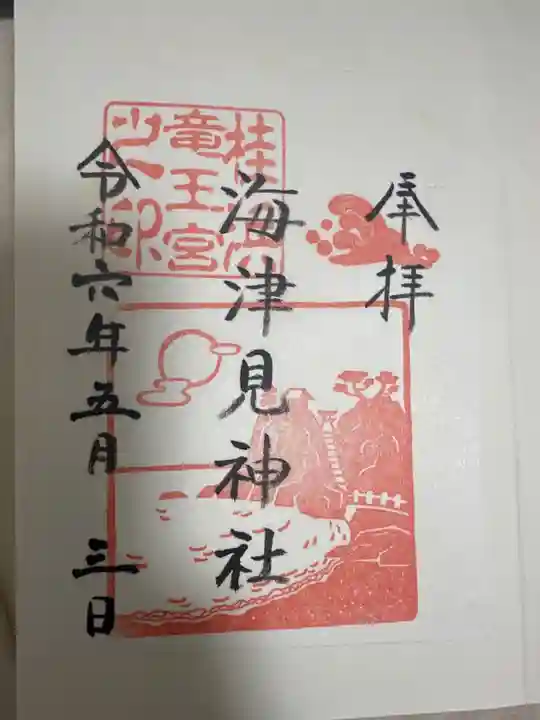 奉拝
海津見神社
令和六年五月三日
桂浜
竜王宮
之印